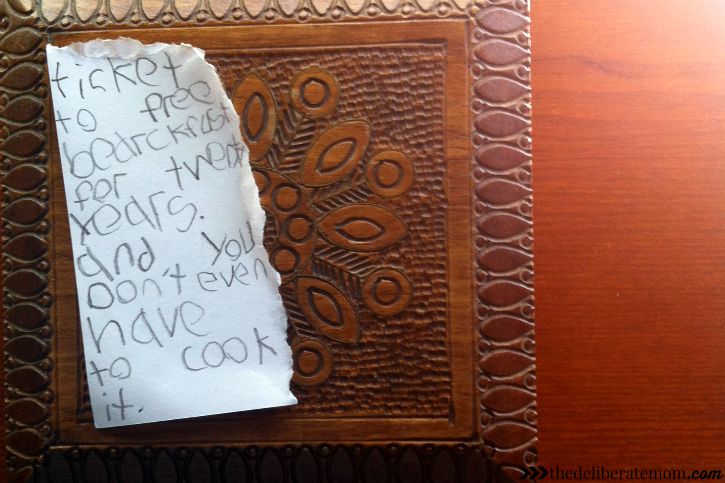 ticket
to free
bedrckfast
for twenty
years.
and you
Don't even
have
to cook
it.
thedeliberatemom.com